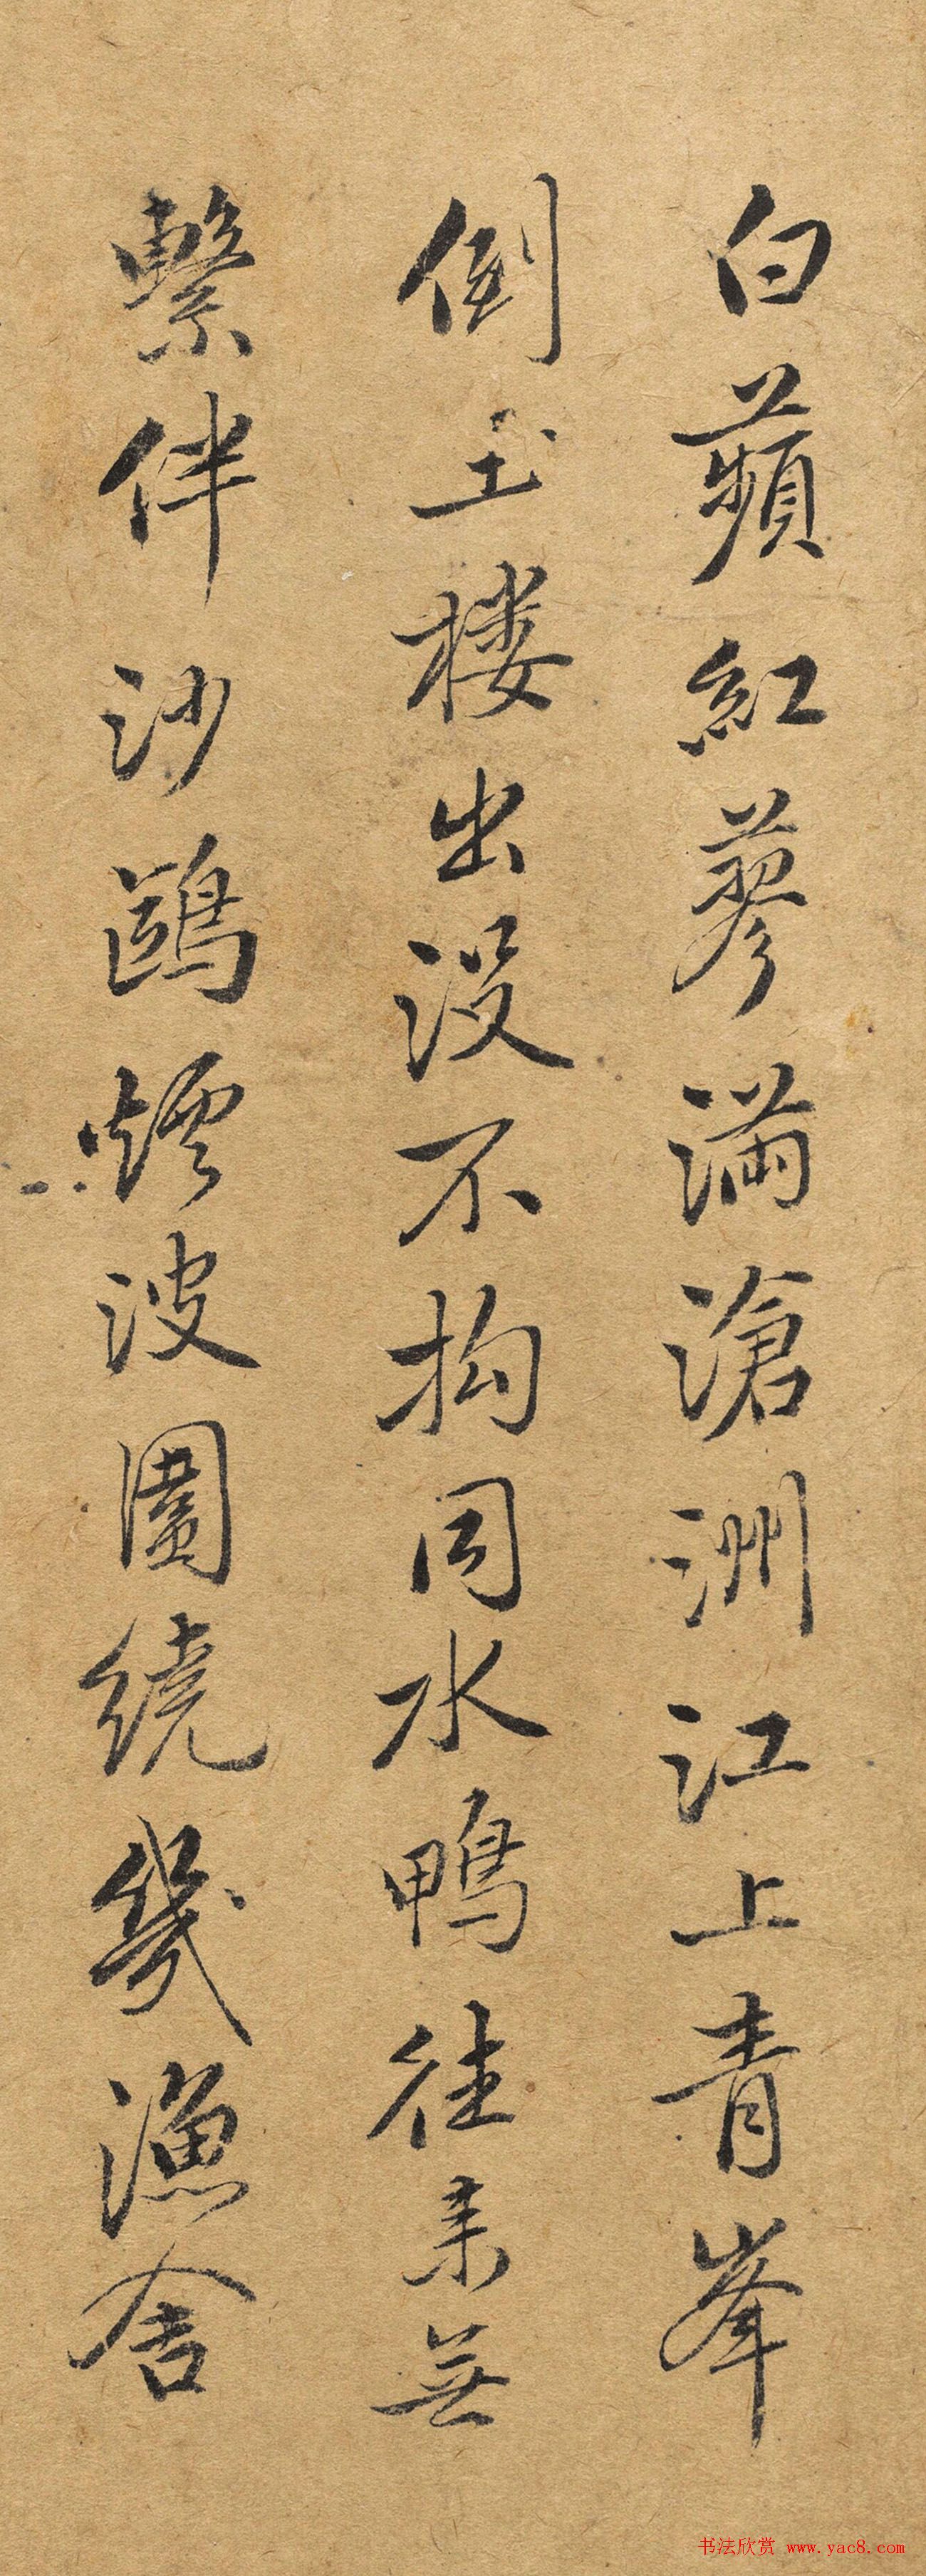 白蘋紅蓼滿滄洲江上青峯
倒玉樓出沒不拘同水鴨往來無
繫伴沙鷗煙波圍繞幾漁舍
书法欣赏 www.yac8.com